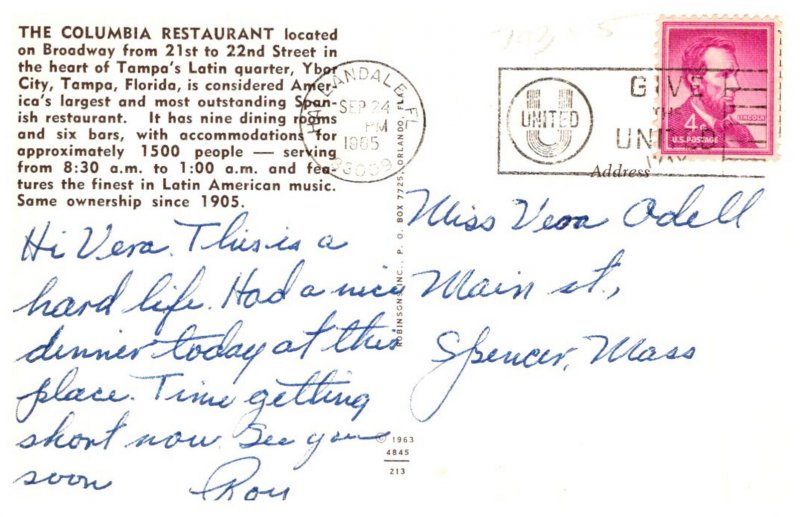 THE COLUMBIA RESTAURANT located
on Broadway from 21st to 22nd Street in
the heart of Tampa's Latin quarter, Ybor
City, Tampa, Florida, is considered Amer-
ica's largest and most outstanding Span-
ish restaurant. It has nine dining rooms
and six bars, with accommodations for
approximately 1500 people — serving
from 8:30 a.m. to 1:00 a.m. and fea-
tures the finest in Latin American music.
Same ownership since 1905.
Hi Vera. This is a
hard life. Had a nice
dinner today at this
place. Time getting
short now. See you
soon
Roy
HALLANDALE, FL
SEP 24
PM
1965
33009
UNITED
GIVE
THE
UNITED
WAY
LINCOLN
4¢
U.S. POSTAGE
Address
Miss Vera Odell
Main st.,
Spencer, Mass
ROBINSONS INC., P. O. BOX 7725, ORLANDO, FLA.
© 1963
4845
213